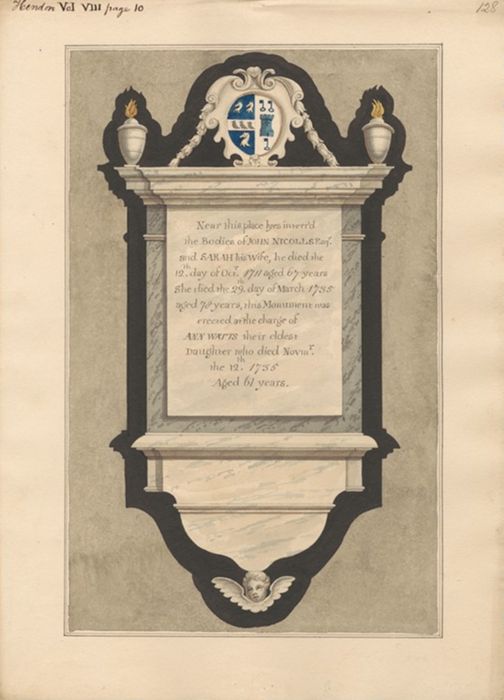 Hendon Vol VIII page 10
128
Near this place lyes interr'd
the Bodies of JOHN NICOLLS Esqr.
and SARAH his Wife, he died the
12th. day of Octr. 1711 aged 67 years
She died the 29th. day of March 1735
aged 78 years, this Monument was
erected at the charge of
ANN WATTS their eldest
Daughter who died Novmr.
the 12th. 1735
Aged 61 years.